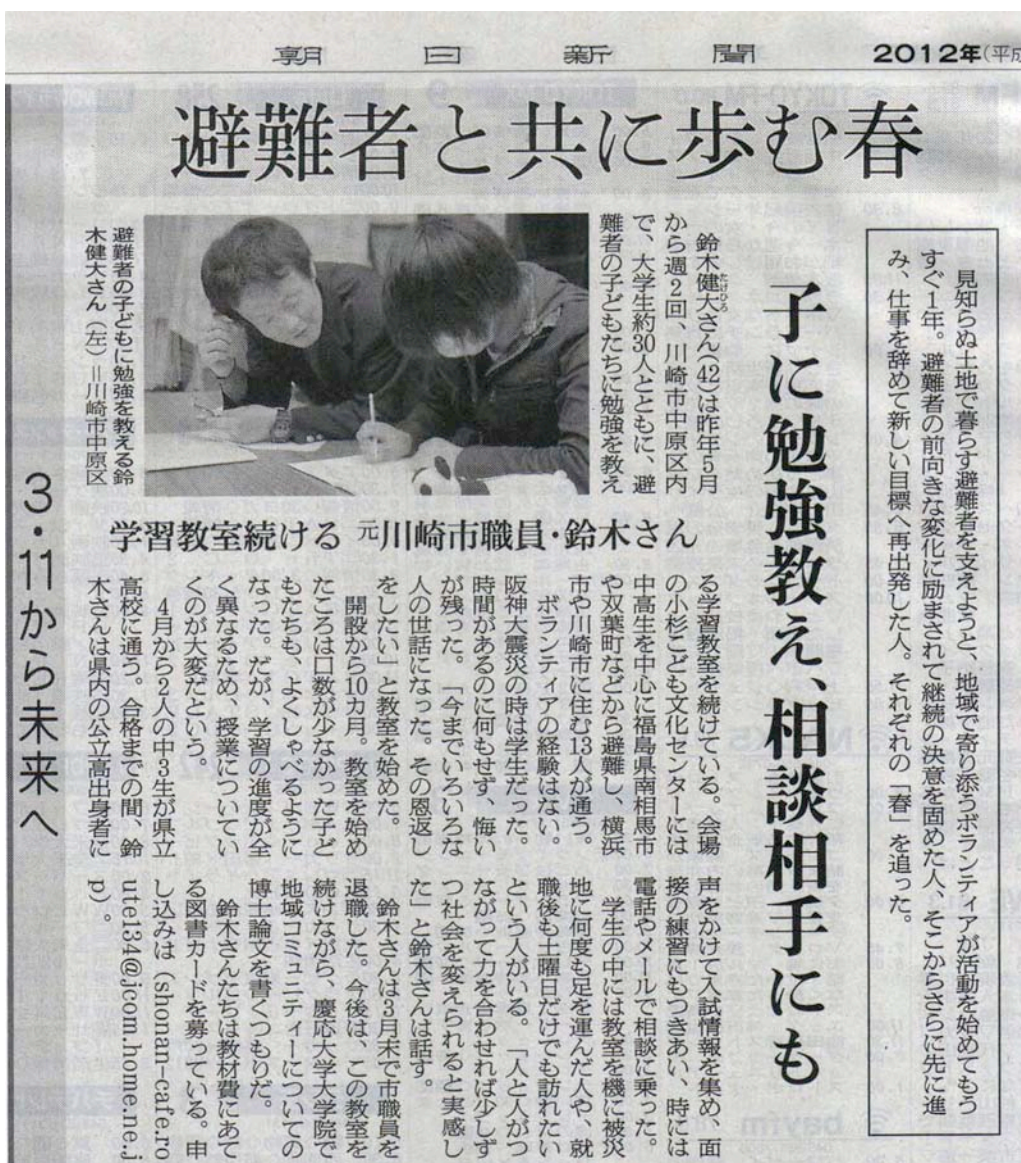 朝日新聞
2012年(平成
避難者と共に歩む春
子に勉強教え、相談相手にも
見知らぬ土地で暮らす避難者を支えようと、地域で寄り添うボランティアが活動を始めてもう
すぐ1年。避難者の前向きな変化に励まされて継続の決意を固めた人、そこからさらに先に進
み、仕事を辞めて新しい目標へ再出発した人。それぞれの「春」を追った。
学習教室続ける 元川崎市職員・鈴木さん
鈴木健大さん(42)は昨年5月
たけひろ
から週2回、川崎市中原区内
で、大学生約30人とともに、避
難者の子どもたちに勉強を教え
る学習教室を続けている。会場
の小杉こども文化センターには
中高生を中心に福島県南相馬市
や双葉町などから避難し、横浜
市や川崎市に住む13人が通う。
ボランティアの経験はない。
阪神大震災の時は学生だった。
時間があるのに何もせず、悔い
が残った。「今までいろいろな
人の世話になった。その恩返し
をしたい」と教室を始めた。
開設から10カ月。教室を始め
たころは口数が少なかった子ど
もたちも、よくしゃべるように
なった。だが、学習の進度が全
く異なるため、授業についてい
くのが大変だという。
4月から2人の中3生が県立
高校に通う。合格までの間、鈴
木さんは県内の公立高出身者に
声をかけて入試情報を集め、面
接の練習にもつきあい、時には
電話やメールで相談に乗った。
学生の中には教室を機に被災
地に何度も足を運んだ人や、就
職後も土曜日だけでも訪れたい
という人がいる。「人と人がつ
ながって力を合わせれば少しず
つ社会を変えられると実感し
た」と鈴木さんは話す。
鈴木さんは3月末で市職員を
退職した。今後は、この教室を
続けながら、慶応大学大学院で
地域コミュニティーについての
博士論文を書くつもりだ。
鈴木さんたちは教材費にあて
る図書カードを募っている。申
し込みは(shonan-cafe.ro
ute134@jcom.home.ne.j
p)。
避難者の子どもに勉強を教える鈴
木健大さん(左)=川崎市中原区
3・11から未来へ